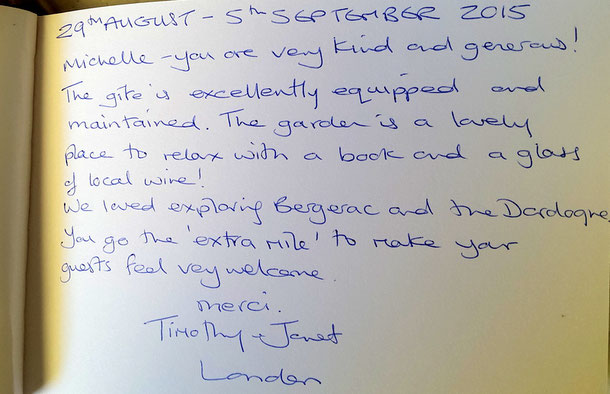 29TH AUGUST - 5TH SEPTEMBER 2015
Michelle - you are very kind and generous!
The gite is excellently equipped and
maintained. The garden is a lovely
place to relax with a book and a glass
of local wine!
We loved exploring Bergerac and the Dordogne.
You go the 'extra mile' to make your
guests feel vey welcome.
merci.
Timothy + Janet
London